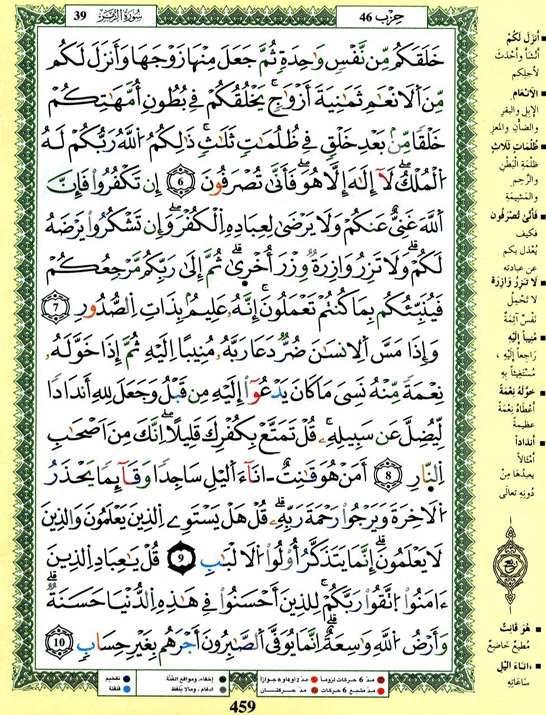 حِزْب 46
سُورَةُ الزُّمَر 39
خَلَقَكُم مِّن نَّفْسٖ وَٰحِدَةٖ ثُمَّ جَعَلَ مِنْهَا زَوْجَهَا وَأَنزَلَ لَكُم
مِّنَ اَلَانْعَٰمِ ثَمَٰنِيَةَ أَزْوَٰجٖۖ يَخْلُقُكُمْ فِے بُطُونِ أُمَّهَٰتِكُمْ
خَلْقاٗ مِّنۢ بَعْدِ خَلْقٖ فِے ظُلُمَٰتٖ ثَلَٰثٖۖ ذَٰلِكُمُ اُللَّهُ رَبُّكُمْ لَهُ
اُلْمُلْكُۖ لَآ إِلَٰهَ إِلَّا هُوَۖ فَأَنّ۪ىٰ تُصْرَفُونَۖ 6 إِن تَكْفُرُواْ فَإِنَّ
اَللَّهَ غَنِيٌّ عَنكُمْ وَلَا يَرْضَىٰ لِعِبَادِهِ اِلْكُفْرَۖ وَإِن تَشْكُرُواْ يَرْضَهُ
لَكُمْۖ وَلَا تَزِرُ وَازِرَةٞ وِزْرَ أُخْر۪ىٰۖ ثُمَّ إِلَىٰ رَبِّكُم مَّرْجِعُكُمْ
فَيُنَبِّئُكُم بِمَا كُنتُمْ تَعْمَلُونَۖ إِنَّهُۥ عَلِيمُۢ بِذَاتِ اِلصُّدُورِۖ 7
وَإِذَا مَسَّ اَلِانسَٰنَ ضُرّٞ دَعَا رَبَّهُۥ مُنِيباً إِلَيْهِ ثُمَّ إِذَا خَوَّلَهُۥ
نِعْمَةٗ مِّنْهُ نَسِيَ مَا كَانَ يَدْعُوٓاْ إِلَيْهِ مِن قَبْلُ وَجَعَلَ لِلهِ أَندَاداٗ
لِّيُضِلَّ عَن سَبِيلِهِۦۖ قُلْ تَمَتَّعْ بِكُفْرِكَ قَلِيلاًۖ اِنَّكَ مِنَ اَصْحَٰبِ
اِلنّ۪ارِۖ 8 أَمَنْ هُوَ قَٰنِتٌ ءَانَآءَ اَليْلِ سَاجِداٗ وَقَآئِماٗ يَحْذَرُ
اُلَاخِرَةَ وَيَرْجُواْ رَحْمَةَ رَبِّهِۦۖ قُلْ هَلْ يَسْتَوِے اِلذِينَ يَعْلَمُونَ وَالذِينَ
لَا يَعْلَمُونَۖ إِنَّمَا يَتَذَكَّرُ أُوْلُواْ اُلَالْبَٰبِۖ 9 قُلْ يَٰعِبَادِ اِلذِينَ
ءَامَنُواْ اُتَّقُواْ رَبَّكُمْۖ لِلذِينَ أَحْسَنُواْ فِے هَٰذِهِ اِلدُّنْي۪ا حَسَنَةٞۖ
وَأَرْضُ اُللَّهِ وَٰسِعَةٌۖ اِنَّمَا يُوَفَّى اَلصَّٰبِرُونَ أَجْرَهُم بِغَيْرِ حِسَابٖۖ 10
أَنزَلَ لَكُم
أنشَأ وأحْدَثَ
لأجلِكم
الأنْعَامِ
الإبِلِ والبقرِ
والضأنِ والمعزِ
ظُلُمَاتٍ ثَلاثٍ
ظلمةِ البَطْنِ
والرَّحِمِ
والمَشِيمَةِ
فَأَنَّى تُصْرَفُون
فكيف
يُعْدَلُ بكم
عن عبادته
لَا تَزِرُ وَازِرَةٌ
لا تَحْمِلُ
نَفْسٌ آثِمَةٌ
مُنِيباً إلَيْهِ
رَاجِعاً إلَيْهِ،
مُسْتغِيثاً بِهِ
خَوَّلَهُ نِعْمَةً
أعْطَاهُ نِعْمَةً
عظيمةً
أنْدَاداً
أمْثَالاً
يعبدُها مِنْ
دُونِهِ تعالَى
ربع
هُوَ قَانِتٌ
مُطِيعٌ خَاضِعٌ
آنَاءَ الليْلِ
سَاعَاتِهِ
مدّ 6 حركات لزوماً
مدّ 2 أو 4 أو 6 جوازاً
إخفاء، ومواقع الغُنَّة
تفخيم
مدّ مشبع 6 حركات
مدّ حركتان
ادغام، ومالا يُلفَظ
قلقلة
459